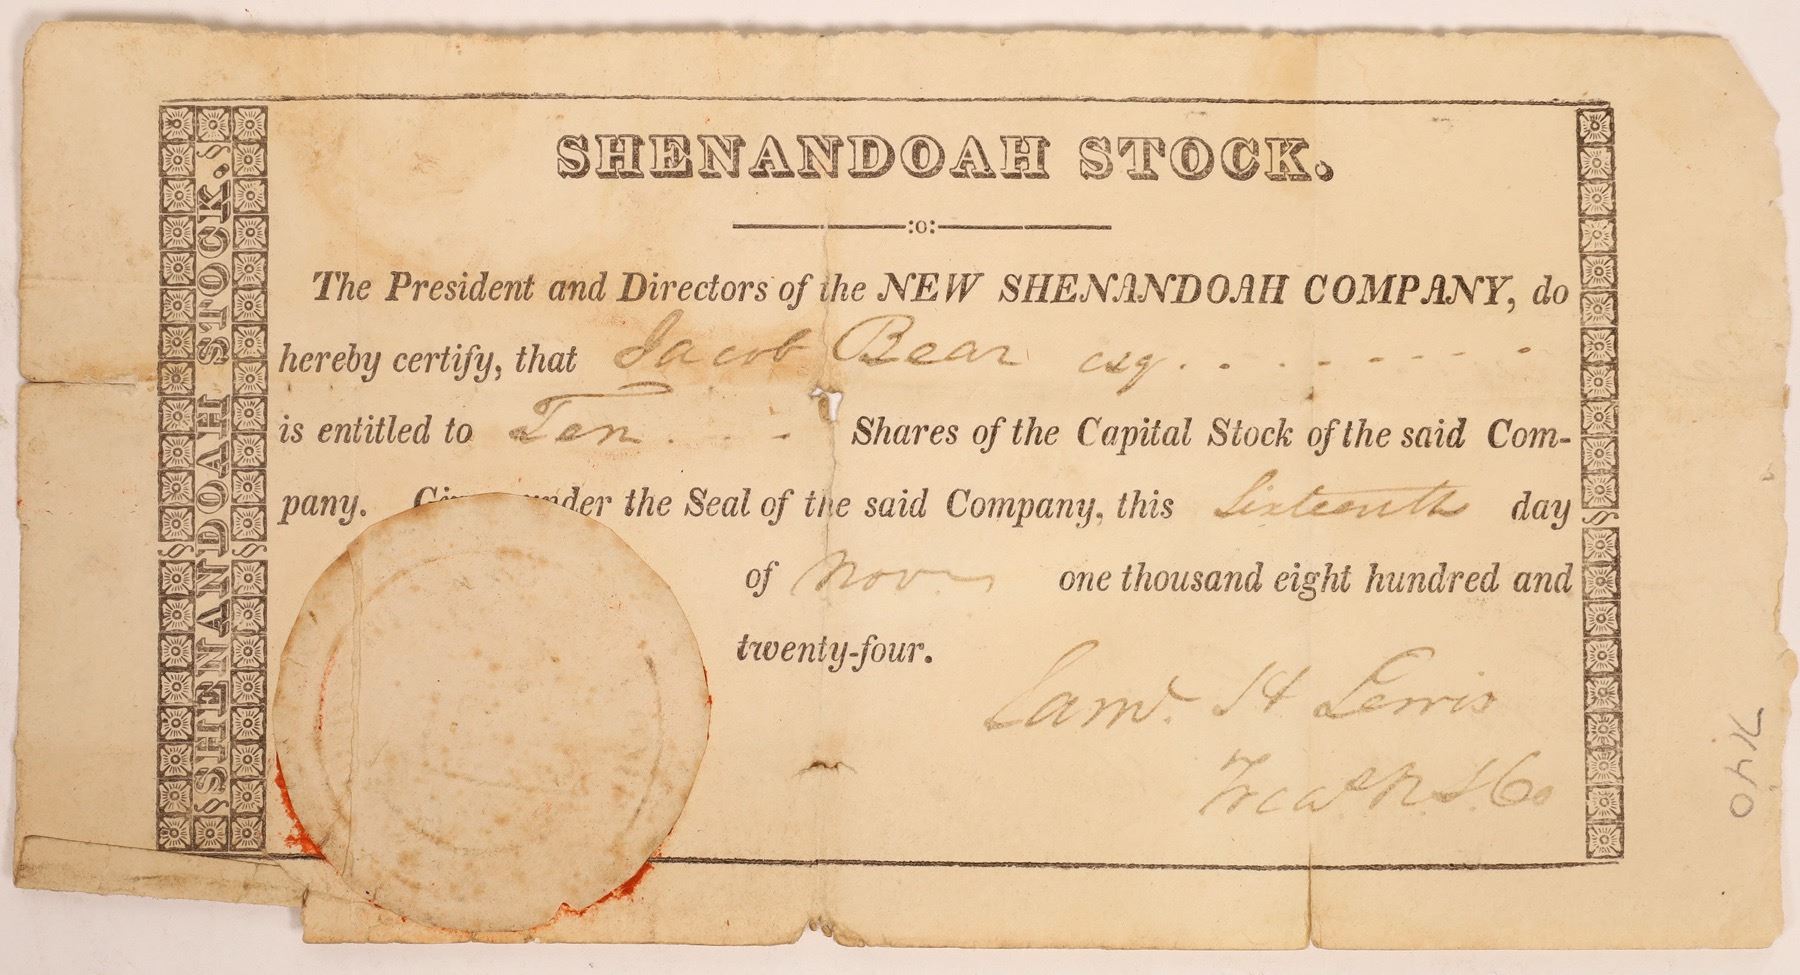 SHENANDOAH STOCK.
SHENANDOAH STOCK.
:o:
The President and Directors of the NEW SHENANDOAH COMPANY, do
hereby certify, that Jacob Bear esq. . . - - - - -
is entitled to Ten . - - - Shares of the Capital Stock of the said Com-
pany. under the Seal of the said Company, this Sixteenth day
of Nov. one thousand eight hundred and
twenty-four.
Saml. H Lewis
N. S. Co